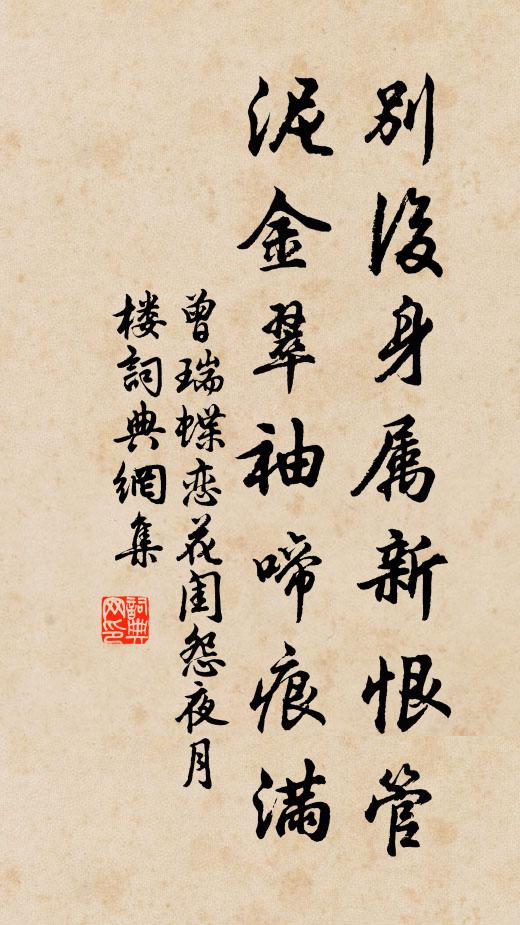 别後身属新恨管
泥金翠袖啼痕满
曾瑞蝶恋花闺怨夜月
楼詞典網集
詞典网印